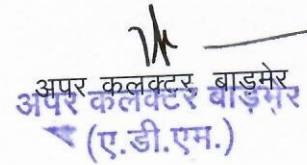 अपर कलक्टर बाड़मेर
अपर कलक्टर बाड़मेर
(ए.डी.एम.)